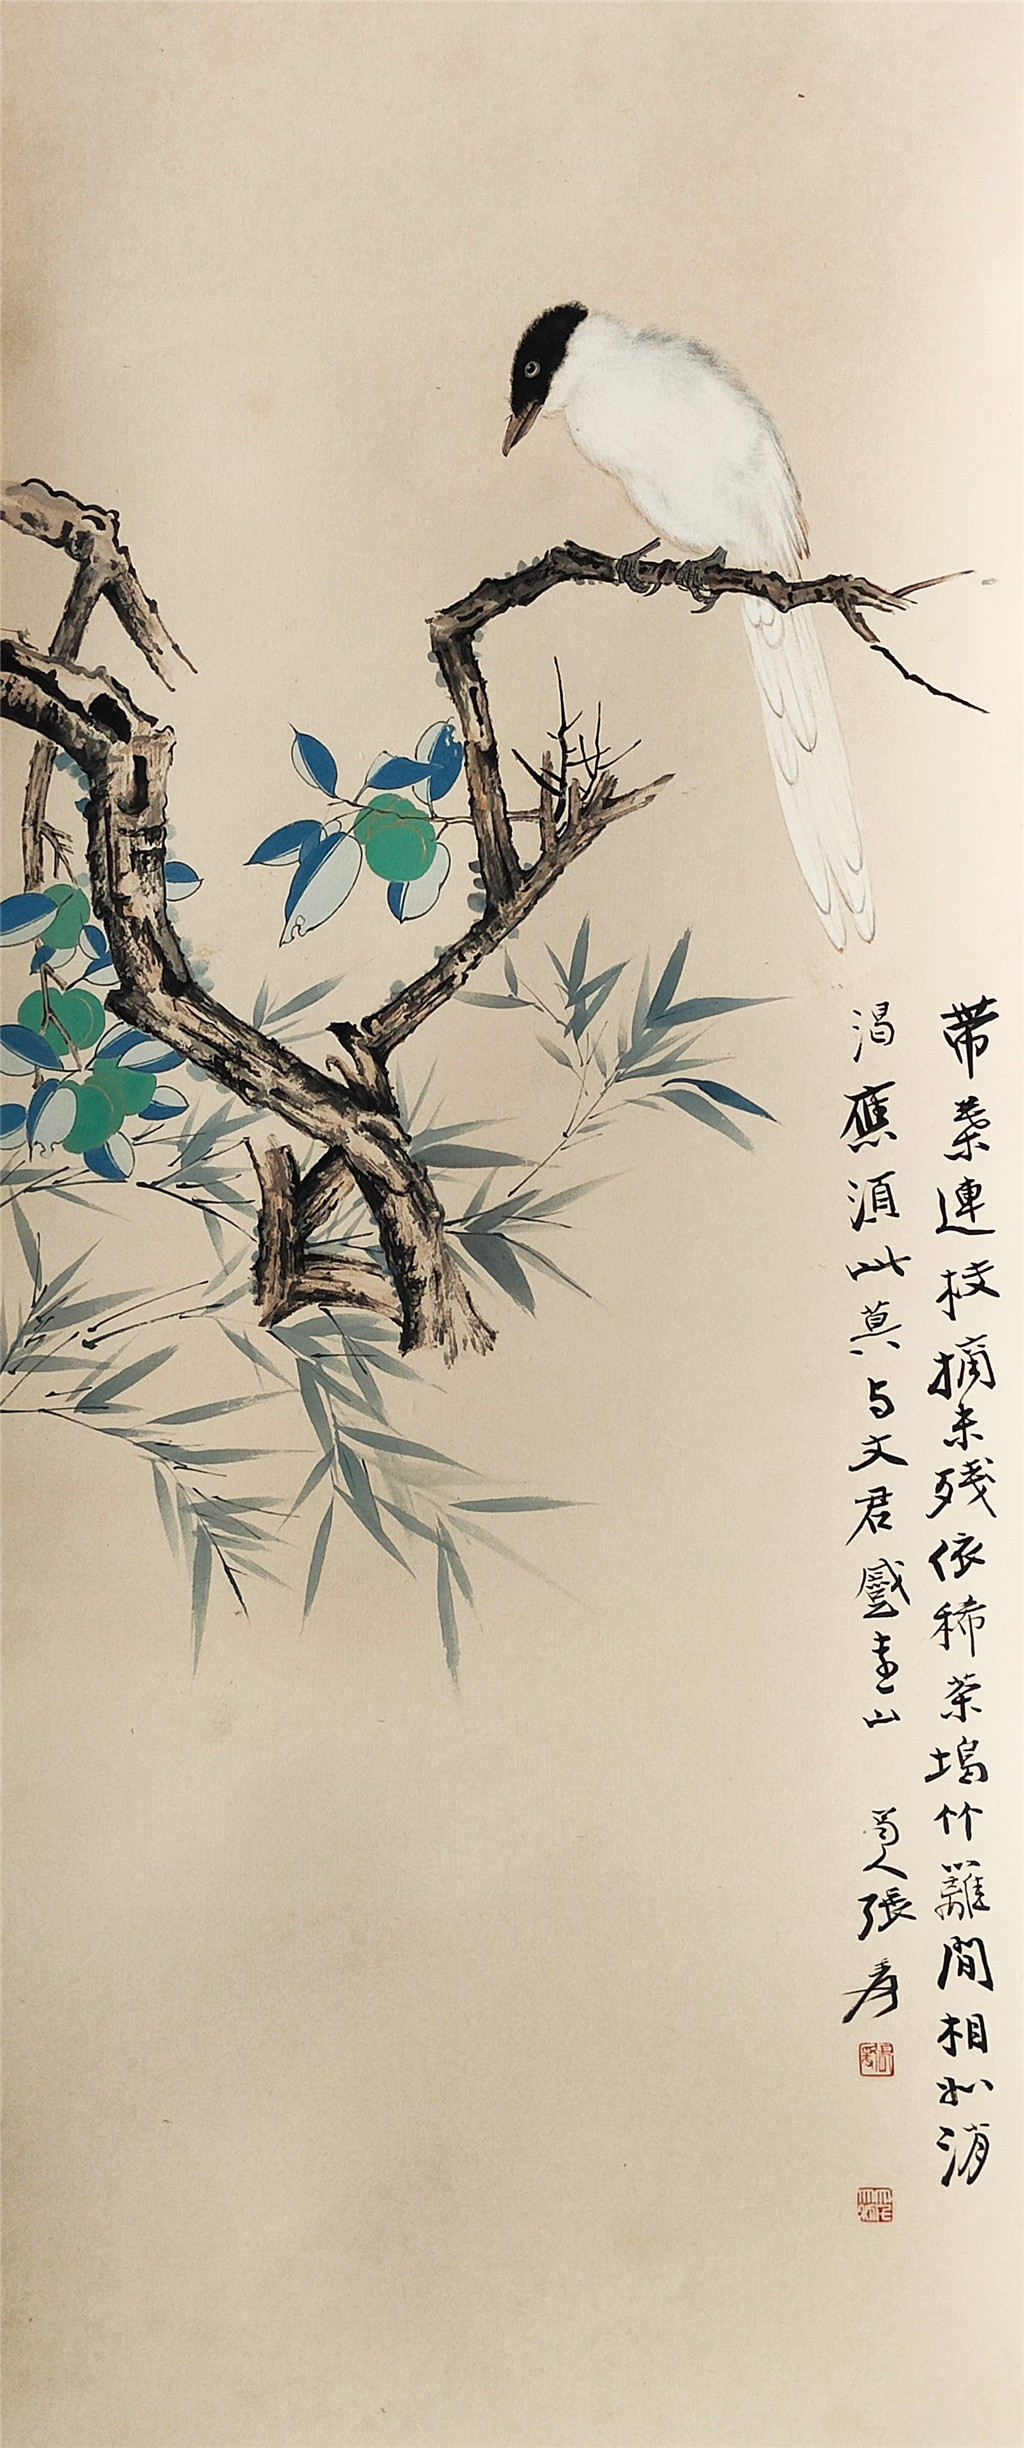 帶葉連枝摘未殘依稀茶塢竹籬間相如消
渴應須此莫与文君蹙遠山 蜀人張爰